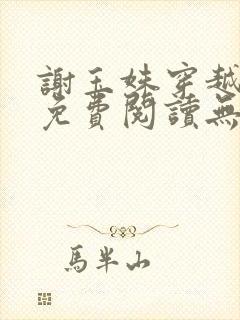 謝玉姝穿越
免費閱讀無
馬半山